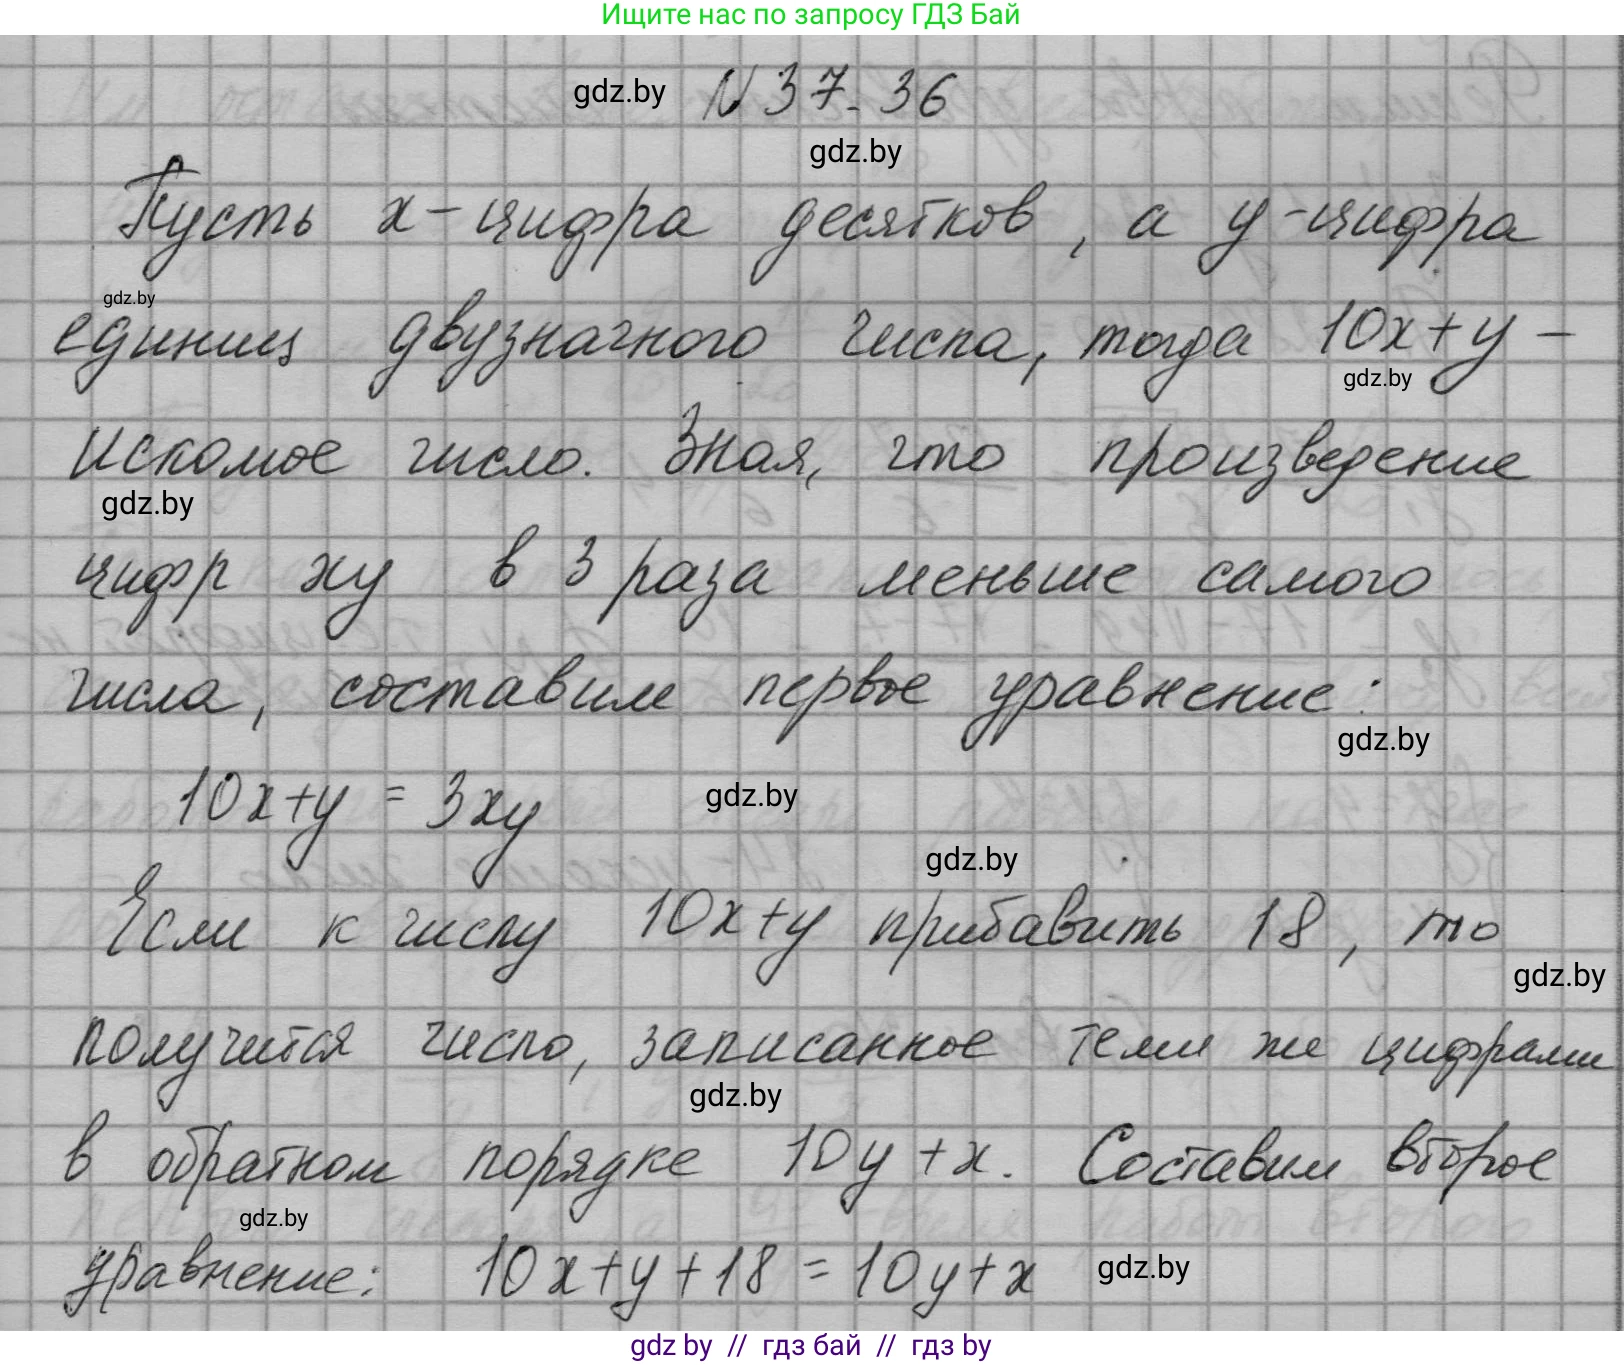 Ищите нас по запросу ГДЗ Бай
gdz.by N 37-36
gdz.by
Пусть x - цифра десятков, а y - цифра
gdz.by
единиц двузначного числа, тогда 10x+y -
gdz.by
искомое число. Зная, что произведение
gdz.by
цифр xy в 3 раза меньше самого
числа, составим первое уравнение:
gdz.by
10x+y = 3xy gdz.by
gdz.by
Если к числу 10x+y прибавить 18, то
gdz.by
получится число, записанное теми же цифрами
gdz.by
в обратном порядке 10y+x. Составим второе
gdz.by
уравнение: 10x+y+18 = 10y+x gdz.by
gdz by // гдз бай // гдз by